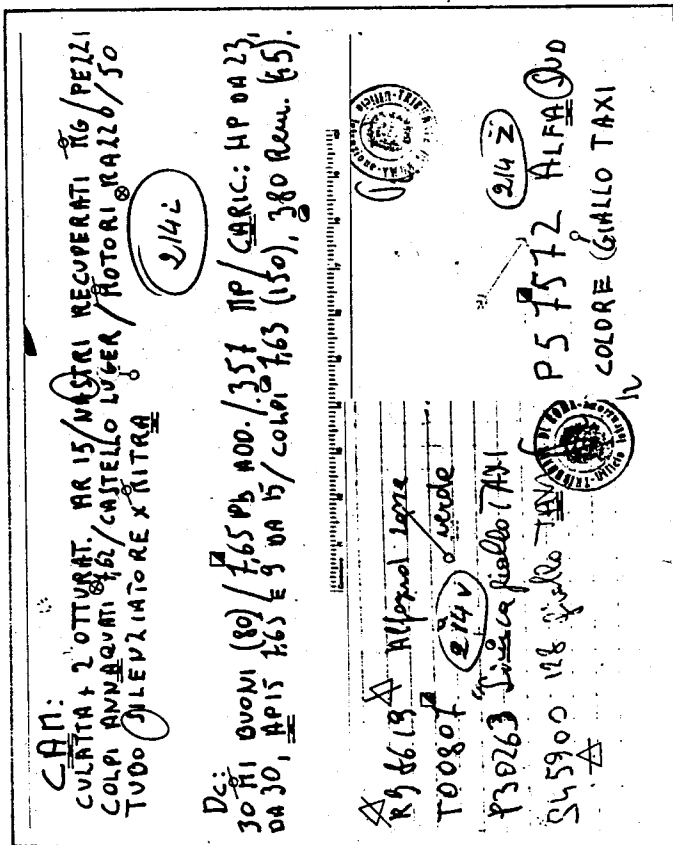 CAM:
CULATTA + 2 OTTURAT. AR 15/NASTRI RECUPERATI MG/PEZZI
COLPI ANNAQUATI 7,62/CASTELLO LUGER/ROTORI RA226/50
TUBO SILENZIATORE X RITRA
214i
DC:
30 M1 BUONI (80)/7,65 Pb ADD./.357 MP/CARIC: HP DA 23,
DA 30, AP15 7.65 E 9 DA 15/COLPI 7,63 (150), 380 Rem. (45).
Alfasud
T00807 verde
214 v
P30263 Simca giallo TAXI
S45900 128 giallo TAXI
TRIBUNALE DI ROMA
214 Z
P57572 ALFA SUD
COLORE GIALLO TAXI